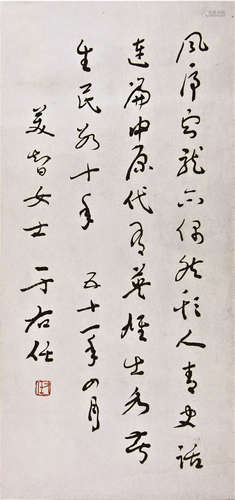 風虎雲龍亦偶然欺人青史話
連篇中原代有英雄出各苦
生民數十年 五十一年四月
美智女士 于右任